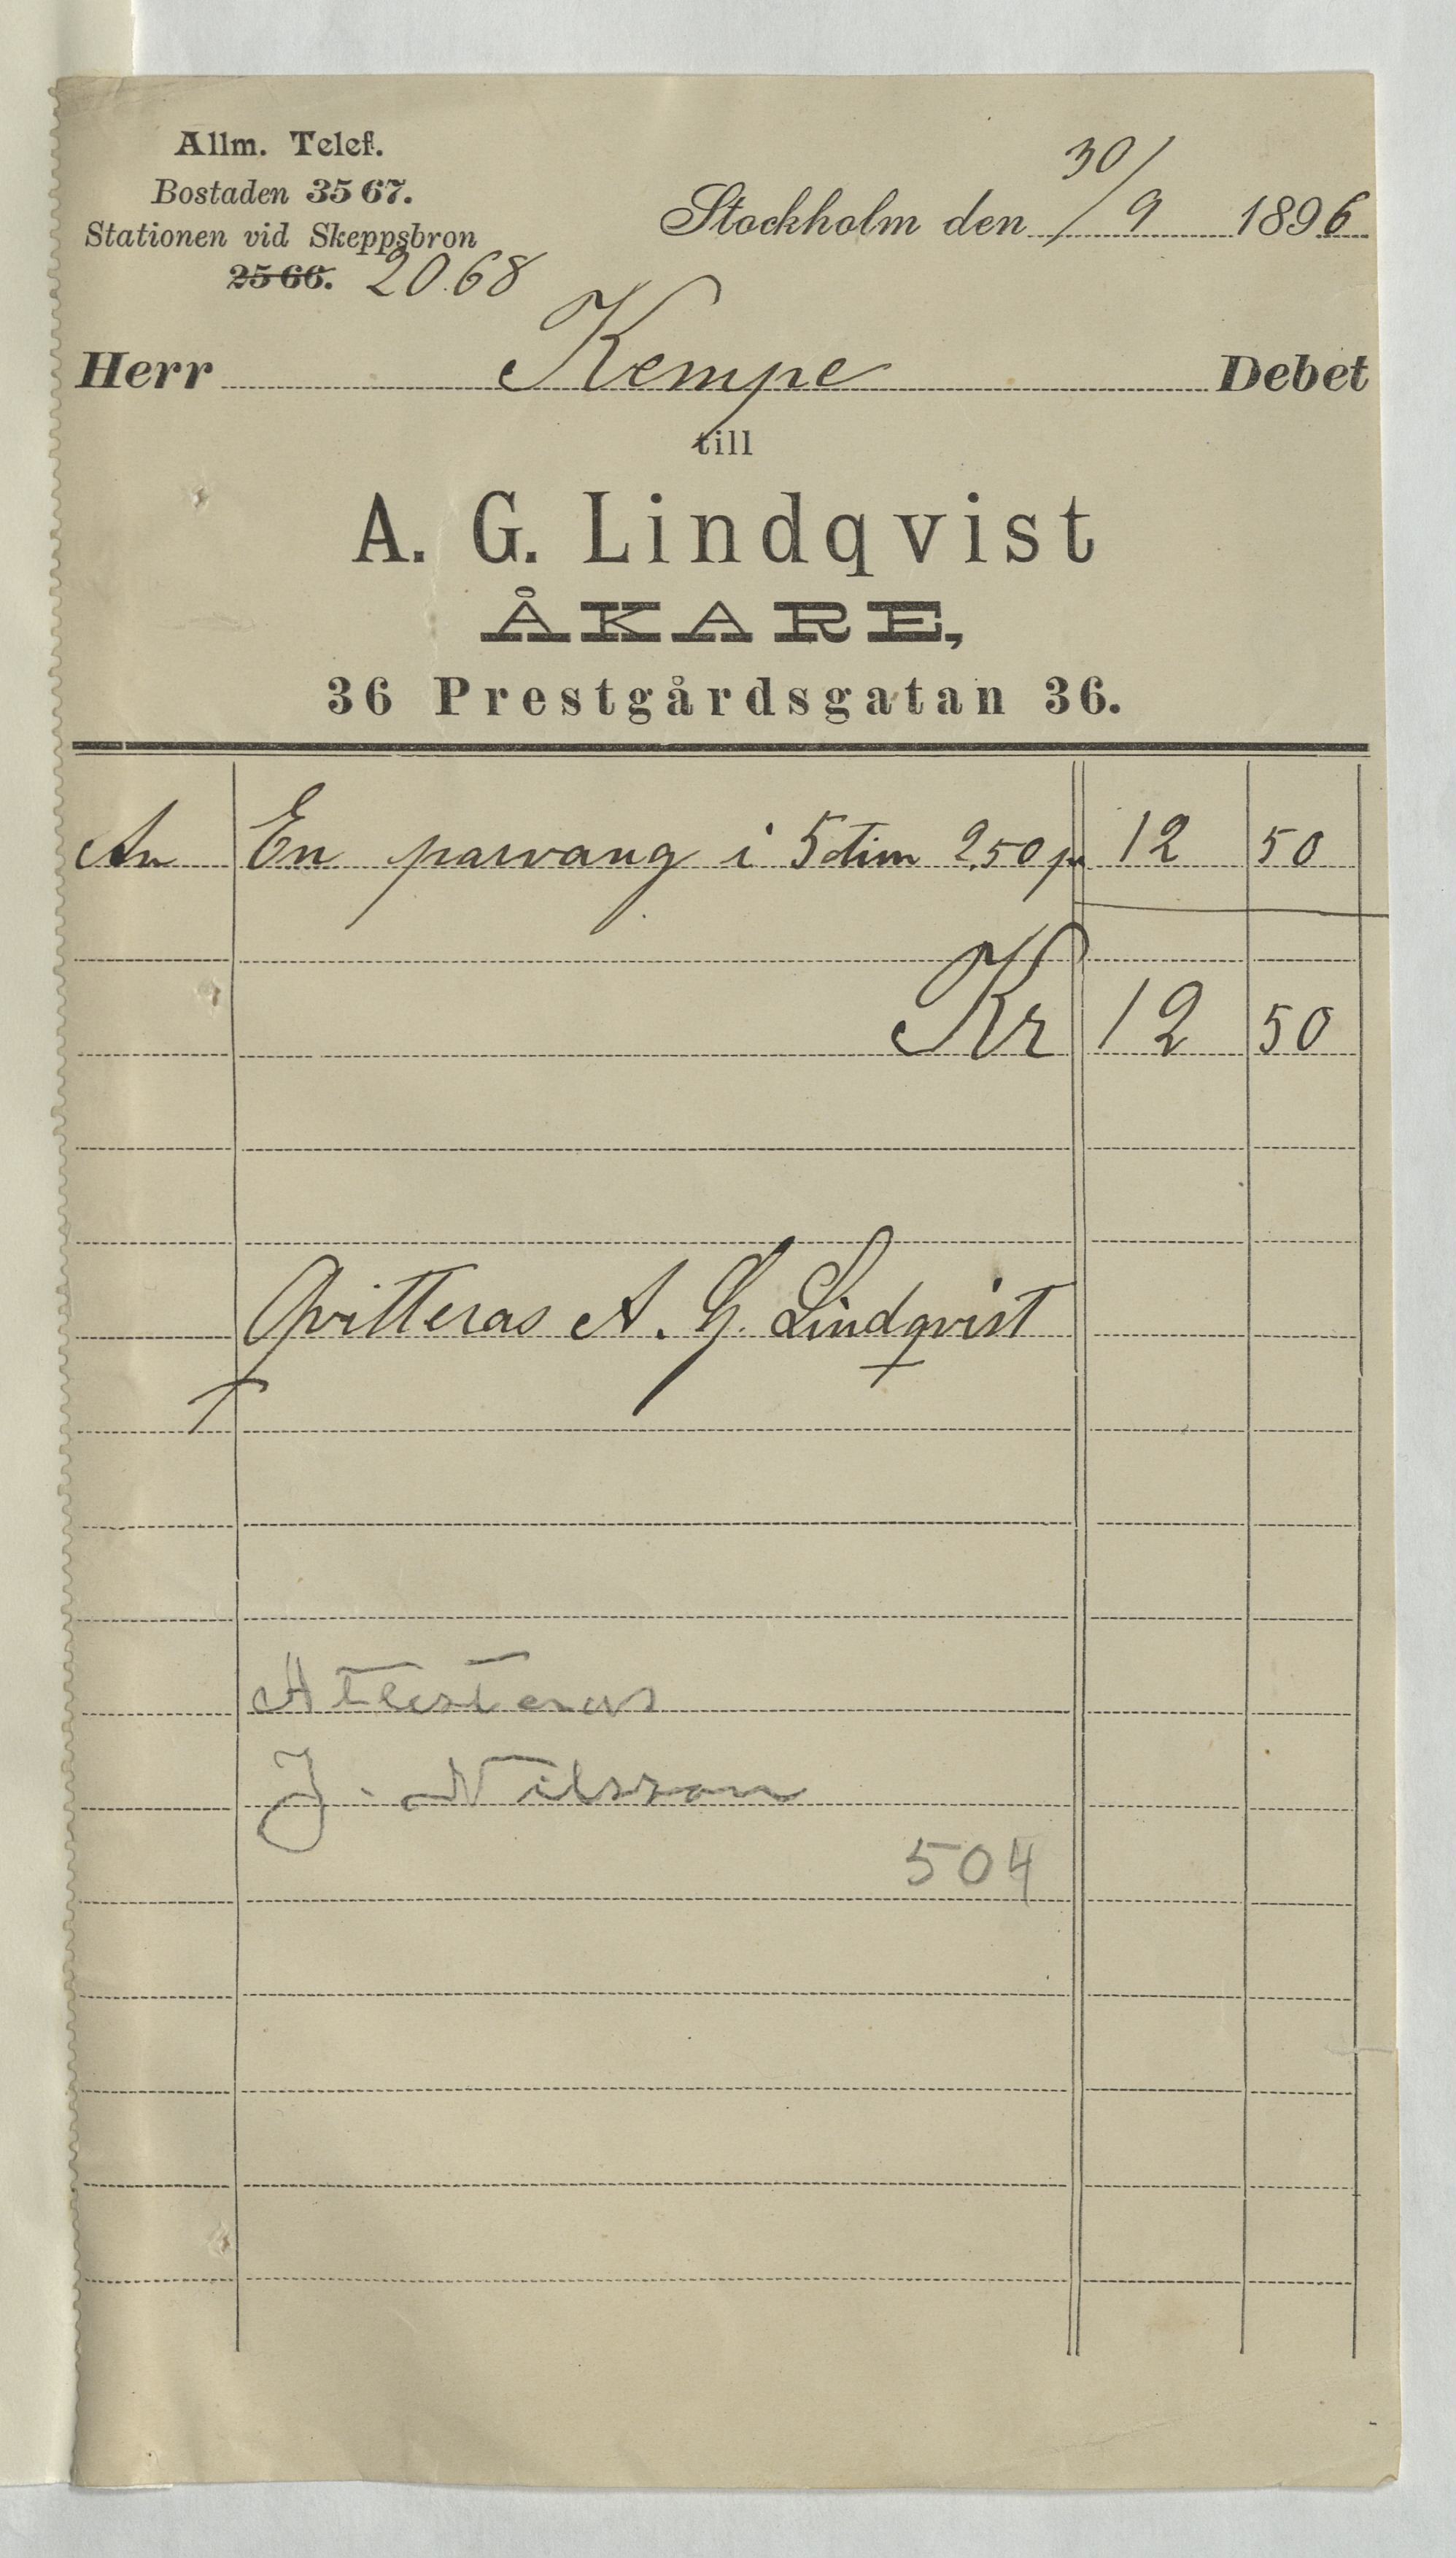 Allm. Telef.
Bostaden 3567.
Stationen vid Skeppsbron
2566. 20.68
Stockholm den 30/9 1896
Herr Kempe Debet
till
A. G. Lindqvist
ÅKARE,
36 Prestgårdsgatan 36.
An En parvang i 5 tim 2,50 pr 12 50
Kr 12 50
Qvitteras A. G. Lindqvist
Attesteras
J. Nilsson
504